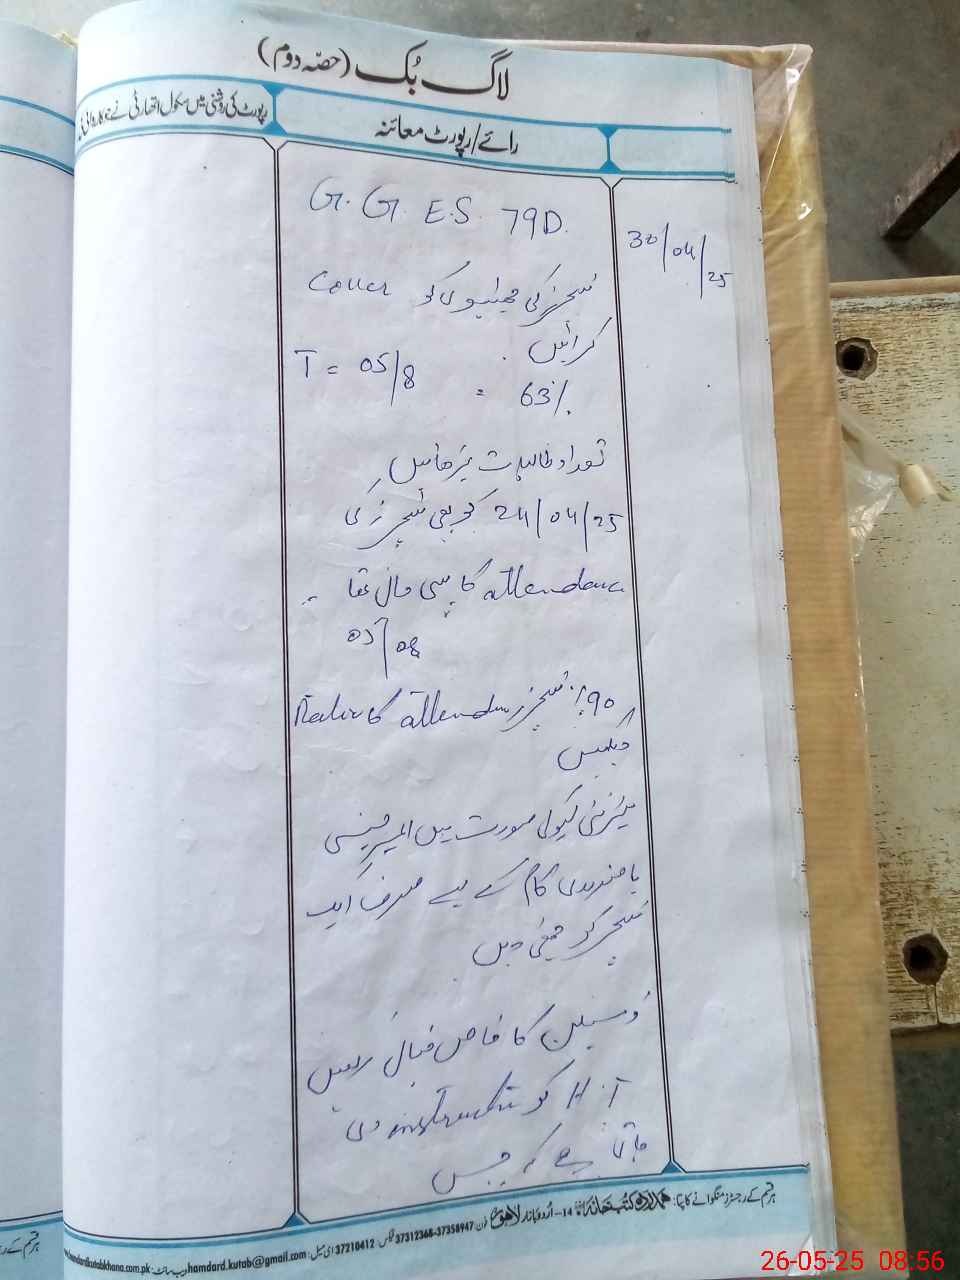 لاگ بُک (حصّہ دوم)
رپورٹ کی روشنی میں سکول اتھارٹی نے جو کاروائی کی
رائے/رپورٹ معائنہ
G. G. E.S. 79D.
30/04/25
ٹیچرز کی کو
کرائیں
T = 05/8 = 63%
تعداد طالبات بڑھائیں
24/04/25 کو بھی ٹیچرز کی
attendance کا یہی حال تھا
05/08
90% ٹیچرز attendance کا Ratio
دیکھیں
میٹرنٹی لیو کی صورت میں ایمرجنسی
یا ضروری کام کے لیے صرف ایک
ٹیچر کو چھٹی دیں
ڈسپلن کا خاص خیال رکھیں
H.T کو instruction دی
جاتی ہے کہ جس
ہر قسم کے رجسٹرز منگوانے کا پتا: ہمدرد کتب خانہ 14-اُردو بازار لاہور فون: 37358947-37312368 فیکس: 37210412 ای میل: hamdard.kutab@gmail.com ویب سائٹ: www.hamdardkutabkhana.com.pk
ہر قسم کے رجسٹرز
26-05-25 08:56